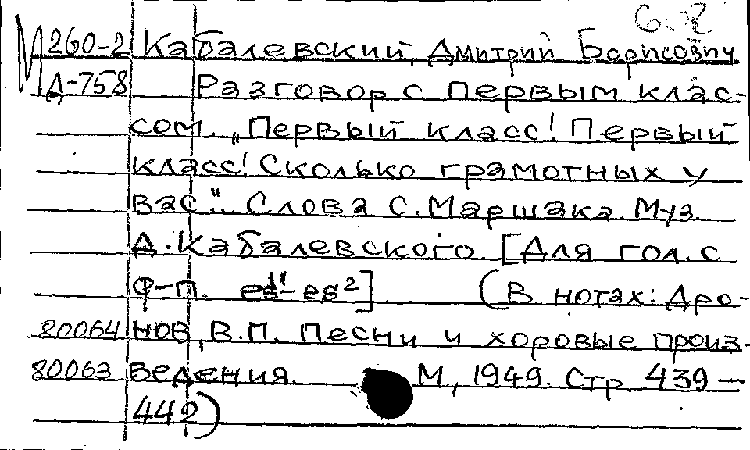 6.2
М260-2 Кабалевский, Дмитрий Борисович.
Д-758 Разговор с первым клас-
сом. „Первый класс! Первый
класс! Сколько грамотных у
вас". Слова С. Маршака. Муз.
Д. Кабалевского [Для гол. с
ф-п. es¹-es²] (В нотах: Дро-
80064 нов, В.П. Песни и хоровые произ-
80063 ведения. М, 1949. Стр 439-
442)